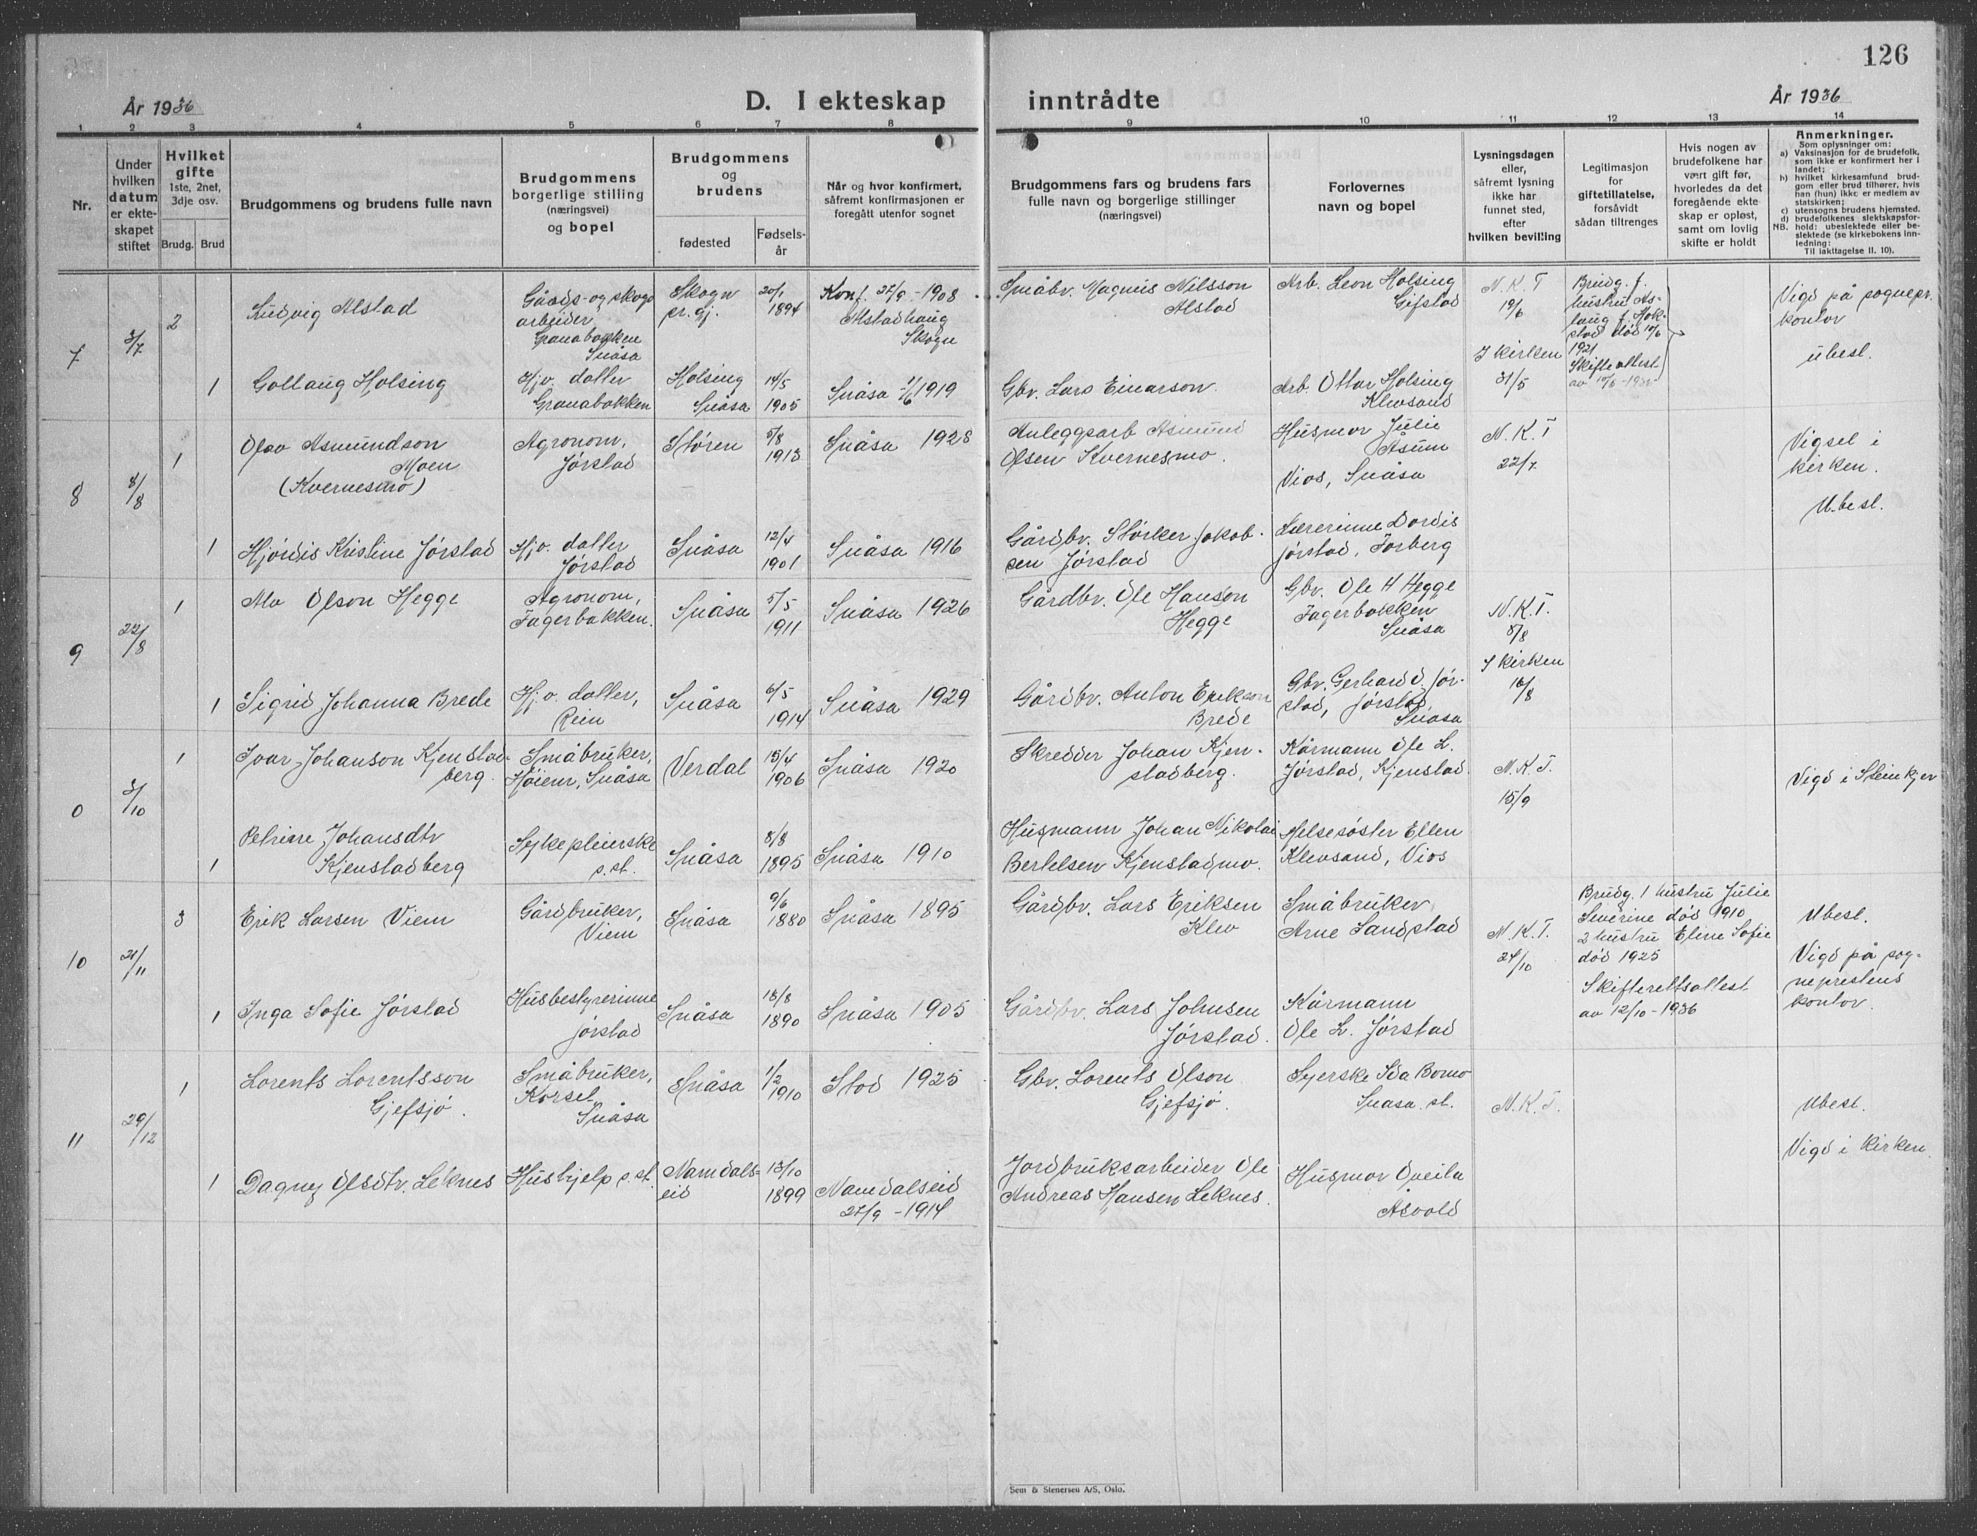 126
År 1936
D. I ekteskap
inntrådte
År 1936
1 2 3 4 5 6 7 8 9 10 11 12 13 14
Nr.
Under
hvilken
datum
er ekte-
skapet
stiftet
Hvilket
gifte
1ste, 2net,
3dje osv.
Brudg. Brud
Brudgommens og brudens fulle navn
Brudgommens
borgerlige stilling
(næringsvei)
og bopel
Brudgommens
og
brudens
fødested
Fødsels-
år
Når og hvor konfirmert,
såfremt konfirmasjonen er
foregått utenfor sognet
Brudgommens fars og brudens fars
fulle navn og borgerlige stillinger
(næringsvei)
Forlovernes
navn og bopel
Lysningsdagen
eller,
såfremt lysning
ikke har
funnet sted,
efter
hvilken bevilling
Legitimasjon
for
giftetillatelse,
forsåvidt
sådan tiltrenges
Hvis nogen av
brudefolkene har
vært gift før,
hvorledes da det
foregående ekte-
skap er opløst,
samt om lovlig
skifte er holdt
Anmerkninger.
Som oplysninger om:
a) Vaksinasjon for de brudefolk,
som ikke er konfirmert her i
landet;
b) hvilket kirkesamfund brud-
gom eller brud tilhører, hvis
han (hun) ikke er medlem av
statskirken;
c) utensogns brudens hjemsted.
d) brudefolkenes slektskapsfor-
NB. hold: ubeslektede eller be-
slektede (se kirkebokens inn-
ledning:
Til iakttagelse II. 10).
7
3/7
2
Ludvig Alstad
Gårds- og skogs
arbeider
Granabakken
Snåsa
Skogn
pr. gj.
20/1
1894
Konf. 27/9 - 1908
Alstadhaug
Skogn
Småbr. Magnus Nilsson
Alstad
Arb. Leon Holsing
Gifstad
N.K.T
19/6
Brudg. f.
hustru As-
laug f. Hok-
stad død 10/6
1921
Skifteattest
Vigd på sognepr.
kontor
ubesl.
1
Gollaug Holsing
Hjv. datter
Granabakken
Holsing
Snåsa
14/5
1905
Snåsa 1/6 1919
Gbr. Lars Einarson
Arb. Ottar Holsing
Klevsand
I kirken
31/5
8
8/8
1
Olav Asmundson
Moen
(Kvernesmo)
Agronom,
Jørstad
Støren
5/8
1913
Snåsa 1928
Anleggsarb Asmund
Olsen Kvernesmo.
Husmor Julie
Åsum
Vios, Snåsa
N.K.T
22/7
Vigsel i
kirken.
Ubesl.
1
Hjørdis Kristine Jørstad
Hjv. datter
Jørstad
Snåsa
12/4
1901
Snåsa 1916
Gårdbr. Størker Jakob-
sen Jørstad
Lærerinne Dordis
Jørstad, Forberg
9
22/8
1
Alv Olson Hegge
Agronom,
Fagerbakken.
Snåsa
5/5
1911
Snåsa 1926
Gårdbr. Ole Hanson
Hegge
Gbr. Ole H Hegge
Fagerbakken
Snåsa
N.K.T.
8/8
I kirken
16/8
1
Sigrid Johanna Brede
Hjv. datter,
Rein
Snåsa
6/5
1914
Snåsa 1929
Gårdbr. Anton Erikson
Brede
Gbr. Gerhard O. Jør-
stad, Jørstad,
Snåsa
0
3/10
1
Ivar Johanson Kjenstad-
berg.
Småbruker,
Høiem, Snåsa
Verdal
15/4
1906
Snåsa 1920
Skredder Johan Kjen-
stadberg.
Kårmann Ole L.
Jørstad, Kjenstad.
N.K.T.
15/9
Vigd i Steinkjer
1
Petrine Johansdtr
Kjenstadberg
Sykepleierske
s. st.
Snåsa
8/8
1895
Snåsa 1910
Husmann Johan Nikolai
Bertelsen Kjenstadmo.
Helsesøster Ellen
Klevsand, Vios
10
21/11
3
Erik Larsen Viem
Gårdbruker,
Viem
Snåsa
9/6
1880
Snåsa 1895
Gårdbr. Lars Eriksen
Klev
Småbruker
Arne Sandstad
N.K.T.
24/10
Brudg. 1 hustru Julie
Severine død 1910
2 hustru Eline Sofie
død 1925
Skifterettsattest
av 12/10 - 1936
Ubesl.
Vigd på sog-
neprestens
kontor.
1
Inga Sofie Jørstad
Husbestyrerinne
Jørstad
Snåsa
18/8
1890
Snåsa 1905
Gårdbr. Lars Johnsen
Jørstad.
Kårmann
Ole L. Jørstad
11
29/12
1
Lorents Lorentsson
Gjefsjø.
Småbruker,
Korsel
Snåsa
Snåsa
1/2
1910
Stod 1925
Gbr. Lorents Olson
Gjefsjø.
Syerske Ida Bomo
Snåsa st.
N.K.T.
Ubesl.
Vigd i kirken.
1
Dagny Olsdtr. Leknes
Hushjelp s. st.
Namdals-
eid
13/10
1899
Namdalseid
27/9 - 1914
Jordbruksarbeider Ole
Andreas Hansen Leknes.
Husmor Oveila
Åsvold
Sem & Stenersen A/S, Oslo.